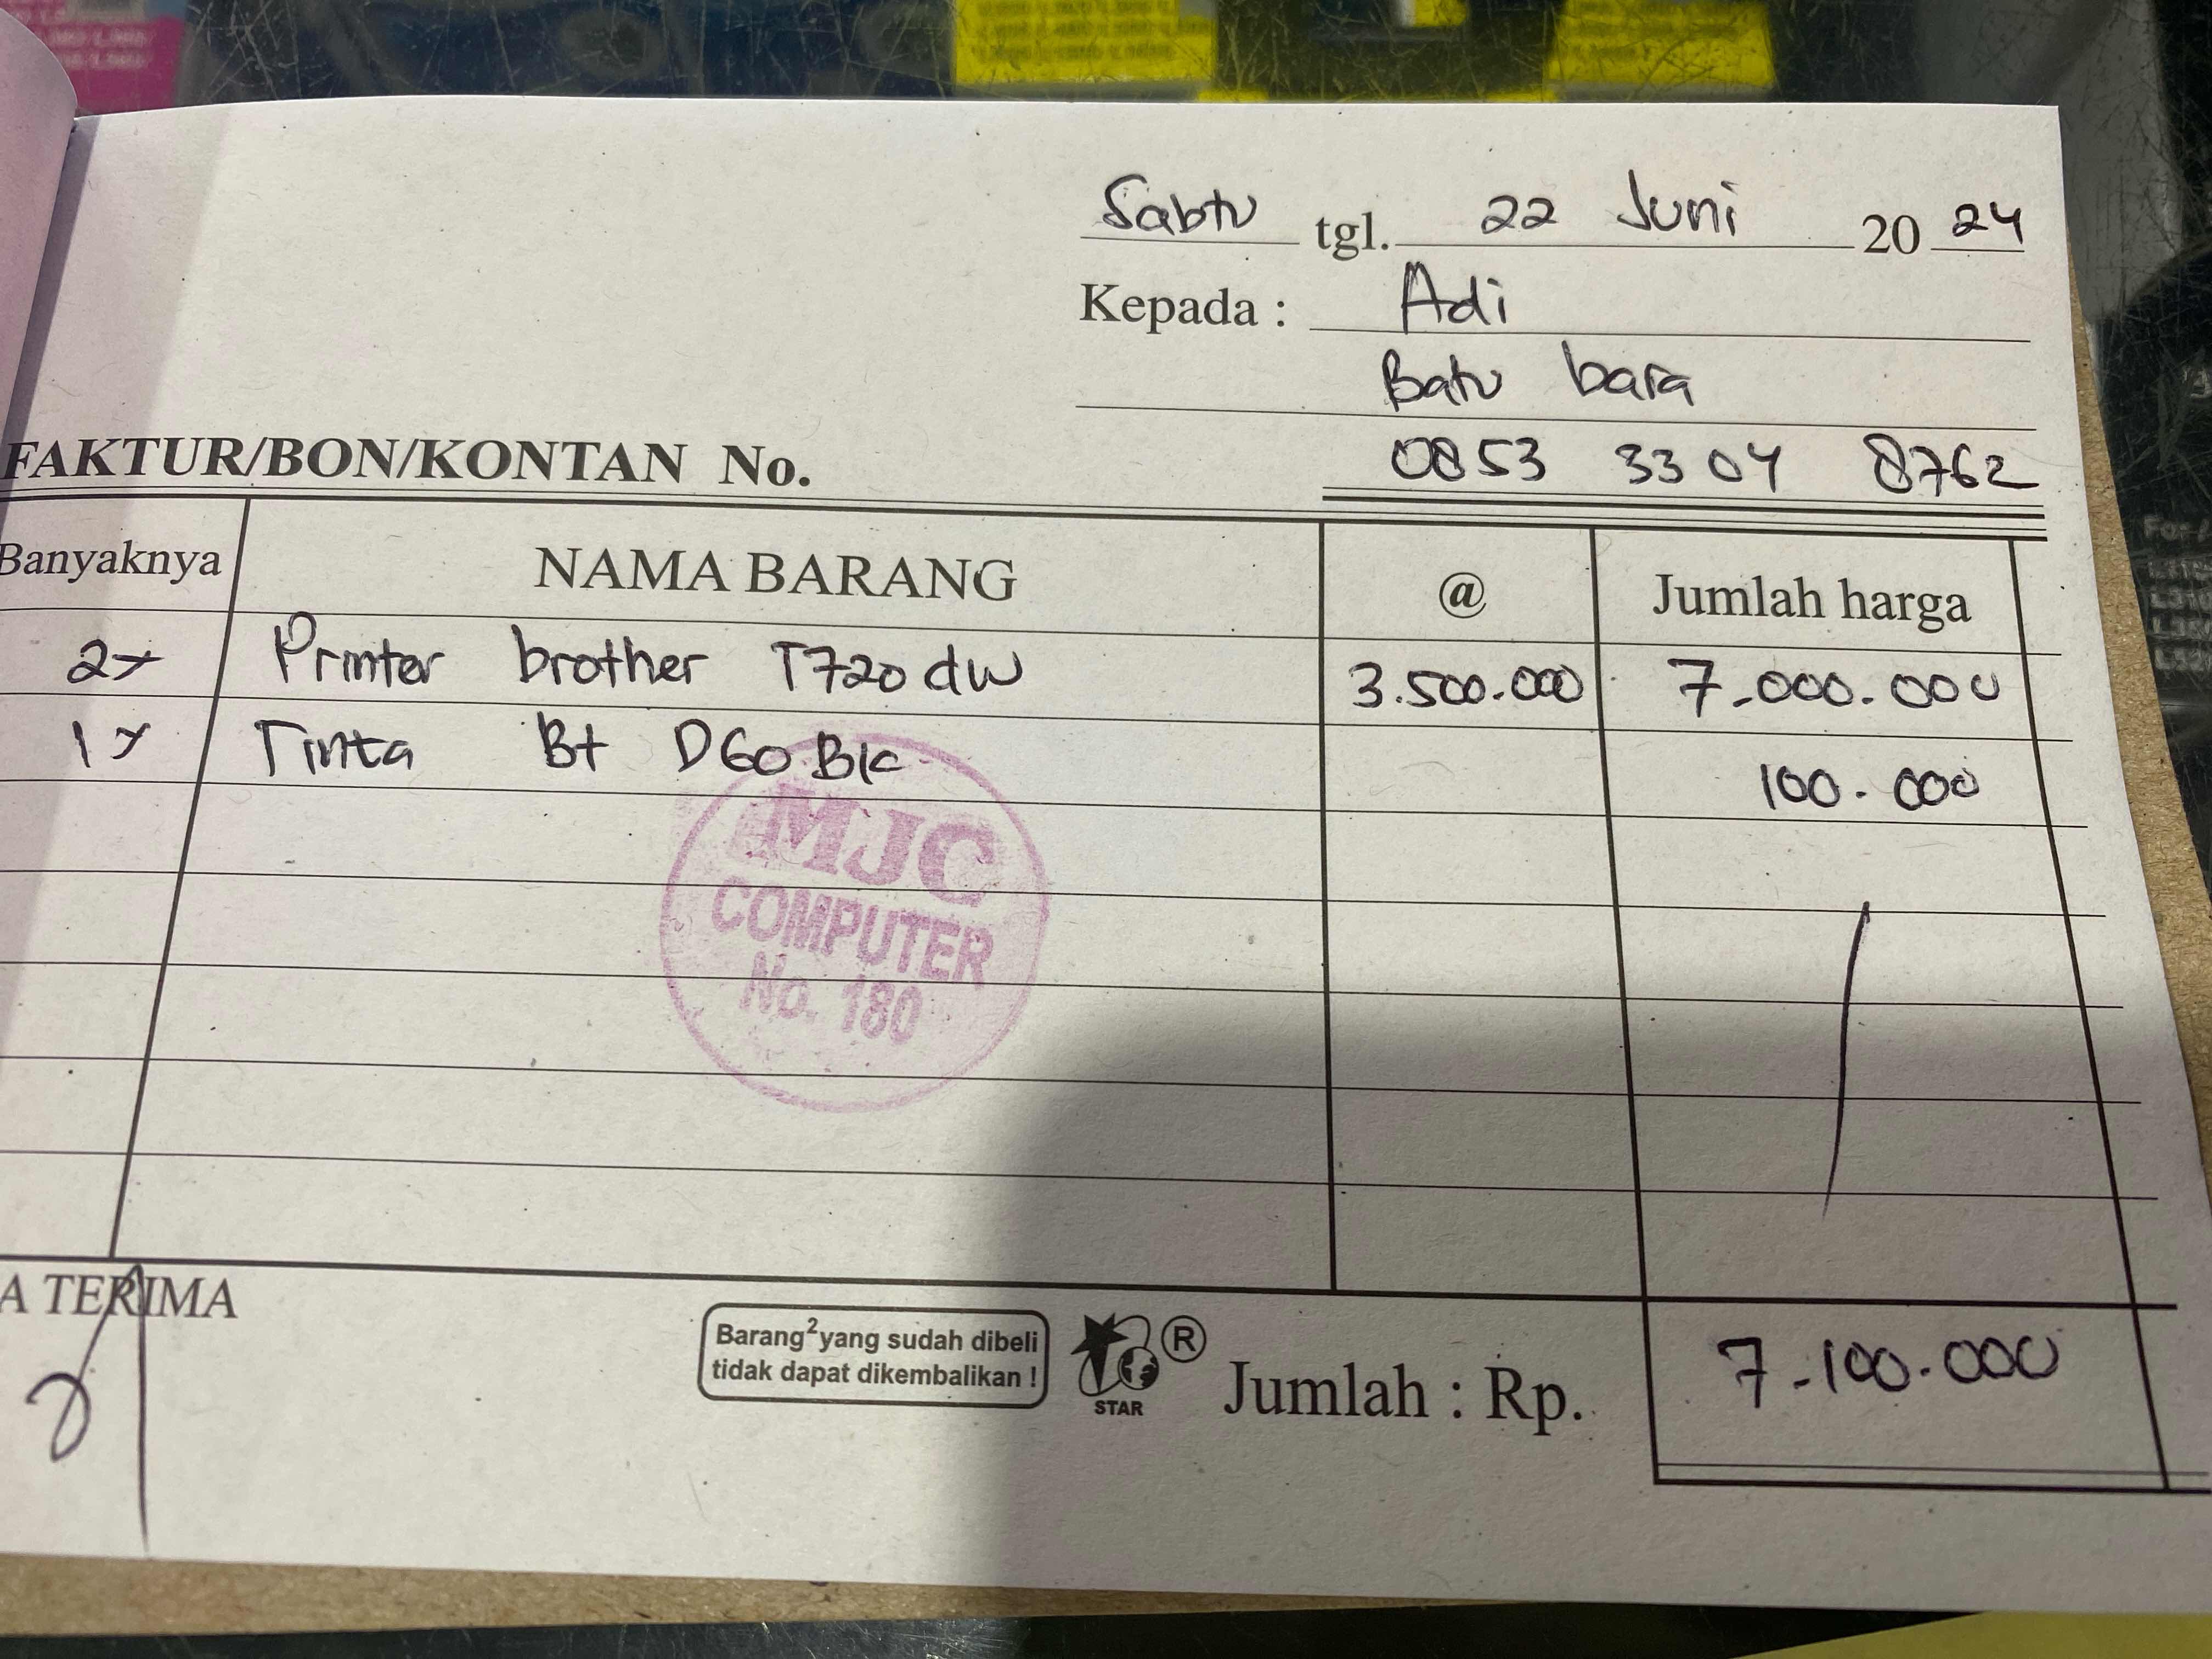 Sabtu tgl. 22 Juni 20 24
Kepada : Adi
Batu bara
0853 3304 8762
FAKTUR/BON/KONTAN No.
Banyaknya NAMA BARANG @ Jumlah harga
2x Printer brother T720 dw 3.500.000 7.000.000
1x Tinta Bt D60 Bk 100.000
MJC
COMPUTER
No. 180
A TERIMA
Barang2 yang sudah dibeli
tidak dapat dikembalikan !
STAR
®
Jumlah : Rp. 7.100.000